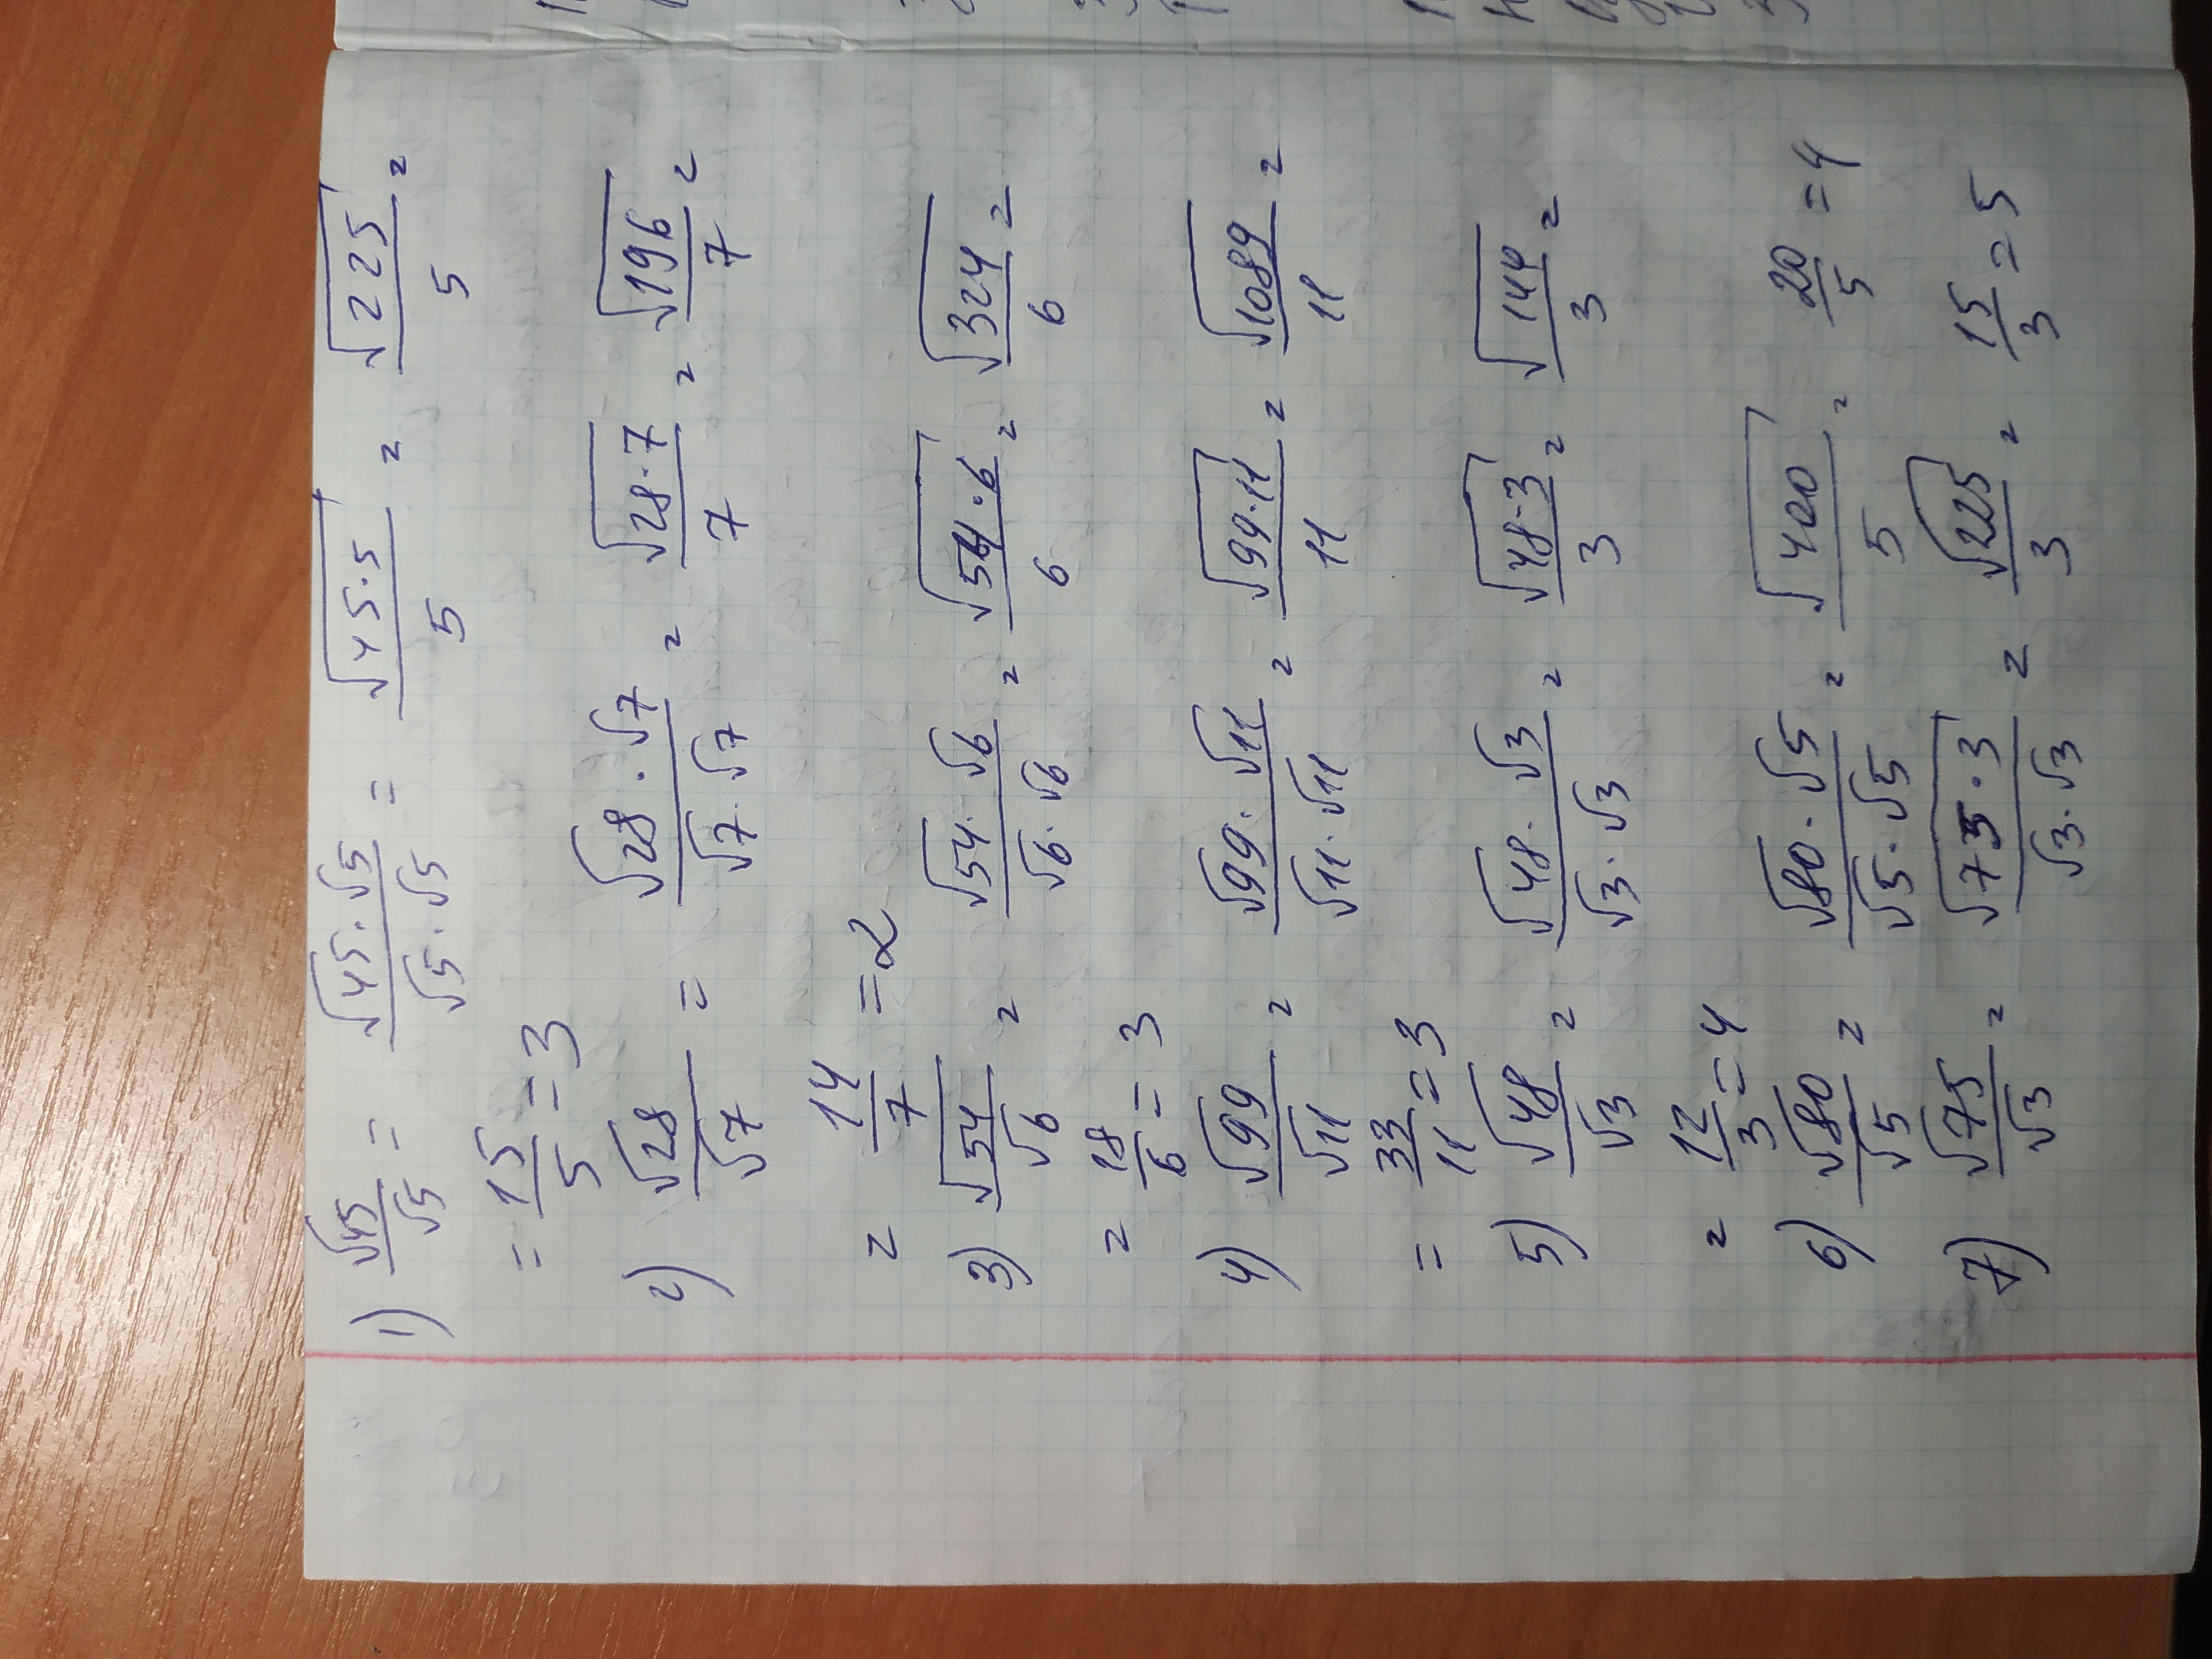 1) √45/√5 = √45·√5/√5·√5 = √45·5/5 = √225/5 =
= 15/5 = 3
2) √28/√7 = √28·√7/√7·√7 = √28·7/7 = √196/7 =
= 14/7 = 2
3) √54/√6 = √54·√6/√6·√6 = √54·6/6 = √324/6 =
= 18/6 = 3
4) √99/√11 = √99·√11/√11·√11 = √99·11/11 = √1089/11 =
= 33/11 = 3
5) √48/√3 = √48·√3/√3·√3 = √48·3/3 = √144/3 =
= 12/3 = 4
6) √80/√5 = √80·√5/√5·√5 = √400/5 = 20/5 = 4
7) √75/√3 = √75·3/√3·√3 = √225/3 = 15/3 = 5